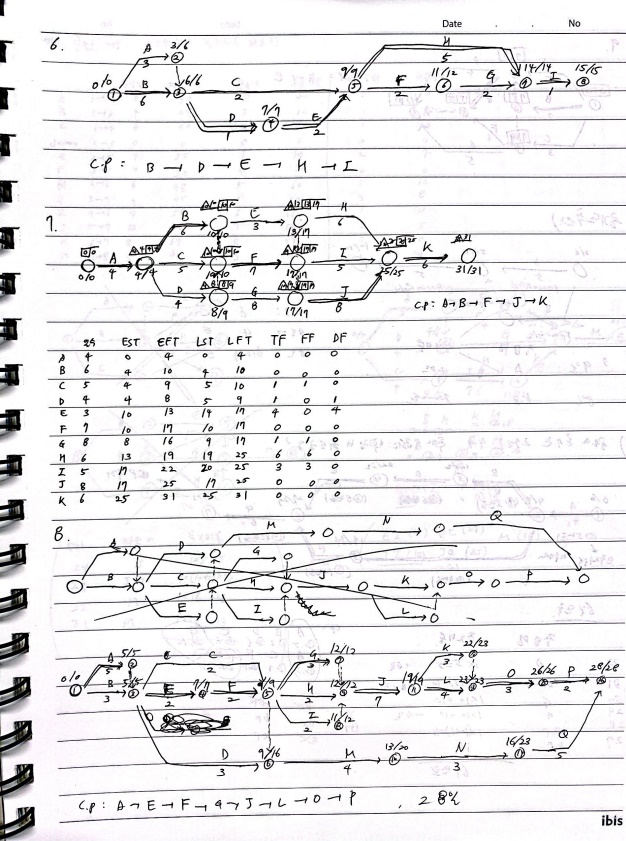 Date . . No
6.
A 3 3/6 ②
0/0 ① B 6 6/6 ③ C 2 9/9 ⑤ H 5 14/14 I 1 15/15 ⑧
F 2 11/12 ⑥ G 2
D 1 7/7 ④ E 2
C.P : B → D → E → H → I
7.
B 6 10/10 E 3 13/17 H 6
0/0 A 4 4/4 C 5 10/10 F 7 17/17 I 5 25/25 K 6 31/31
D 4 8/9 G 8 17/17 J 8
CP : A → B → F → J → K
EST EFT LST LFT TF FF DF
A 4 0 4 0 4 0 0 0
B 6 4 10 4 10 0 0 0
C 5 4 9 5 10 1 1 0
D 4 4 8 5 9 1 0 1
E 3 10 13 14 17 4 0 4
F 7 10 17 10 17 0 0 0
G 8 8 16 9 17 1 1 0
H 6 13 19 19 25 6 6 0
I 5 17 22 20 25 3 3 0
J 8 17 25 17 25 0 0 0
K 6 25 31 25 31 0 0 0
8.
A D M N Q
G
B C H J K O P
E I L
A 5 5/5 C 2 G 3 12/12 K 3 22/23
0/0 ① B 3 5/5 E 2 7/7 F 2 9/9 H 2 12/12 J 7 19/19 L 4 23/23 O 3 26/26 P 2 28/28
I 2 11/12
D 3 9/16 M 4 13/20 N 3 16/23 Q 5
C.P : A → E → F → G → J → L → O → P , 28일
ibis